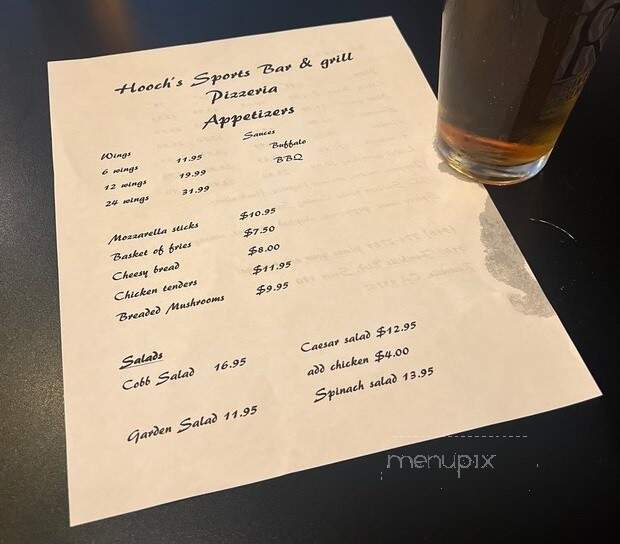 Hooch's Sports Bar & grill
Pizzeria
Appetizers
Sauces
Wings
Buffalo
6 wings 11.95
BBQ
12 wings 19.99
24 wings 31.99
Mozzarella sticks $10.95
Basket of fries $7.50
Cheesy bread $8.00
Chicken tenders $11.95
Breaded Mushrooms $9.95
Salads
Cobb Salad 16.95
Garden Salad 11.95
Caesar salad $12.95
add chicken $4.00
Spinach salad 13.95
menupix